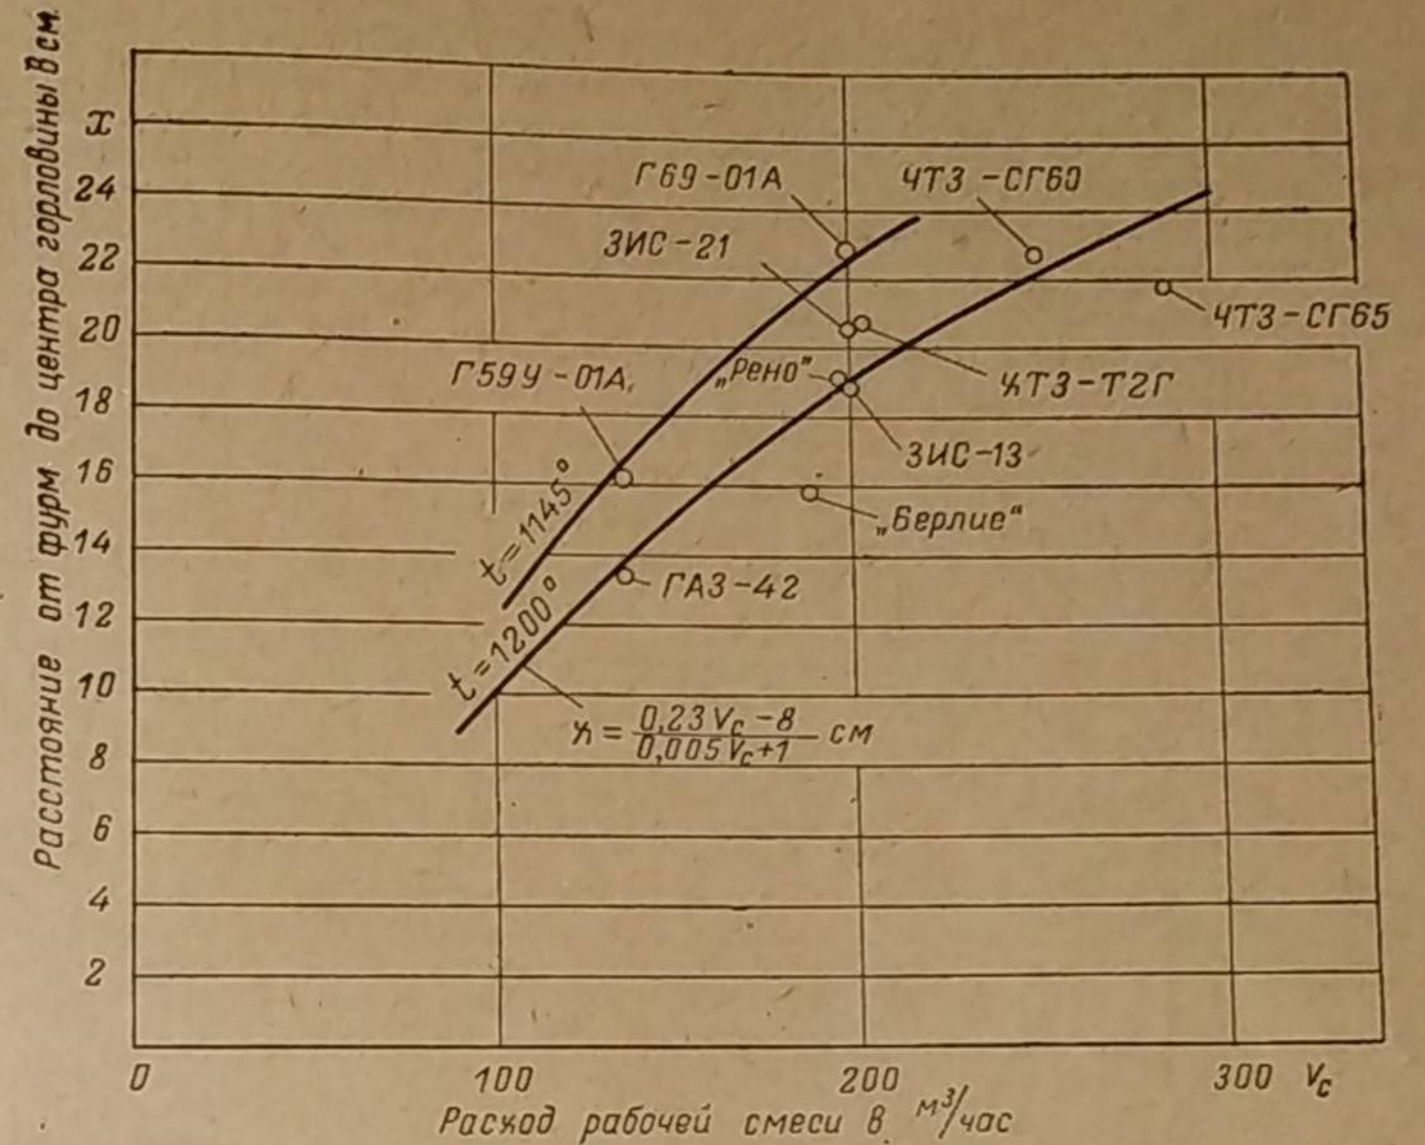 Расстояние от фурм до центра горловины в см.
x
24
22
20
18
16
14
12
10
8
6
4
2
Г69-01А
ЧТЗ-СГ60
ЗИС-21
ЧТЗ-СГ65
Г59У-01А
„Рено“
ХТЗ-Т2Г
ЗИС-13
„Берлие“
t=1145°
ГАЗ-42
t=1200°
x = (0,23Vc-8)/(0,005Vc+1) см
0 100 200 300 Vc
Расход рабочей смеси в м³/час